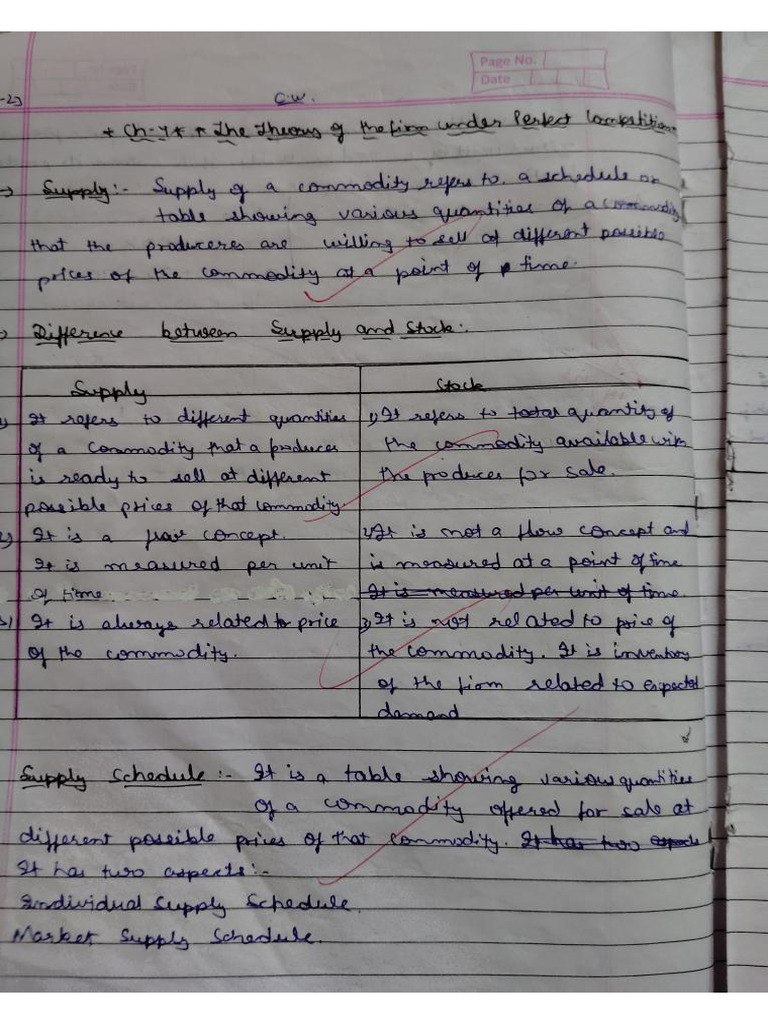 Page No.
Date
C.W.
* Ch-4 * * The Theory of the firm under Perfect Competition
→ Supply:- Supply of a commodity refers to a schedule or
table showing various quantities of a commodity
that the produceres are willing to sell at different possible
prices of the commodity at a point of time.
Difference between Supply and Stock:-
Supply
Stock
1) It refers to different quantities
of a commodity that a producer
is ready to sell at different
possible prices of that commodity
1) It refers to total quantity of
the commodity available with
the producer for sale.
2) It is a flow concept.
It is measured per unit
of time.
2) It is not a flow concept and
is measured at a point of time
It is measured per unit of time.
3) It is always related to price
of the commodity.
3) It is not related to price of
the commodity. It is inventory
of the firm related to expected
demand
Supply Schedule:- It is a table showing various quantities
of a commodity offered for sale at
different possible prices of that commodity. It has two aspects
It has two aspects:-
Individual Supply Schedule.
Market Supply Schedule.